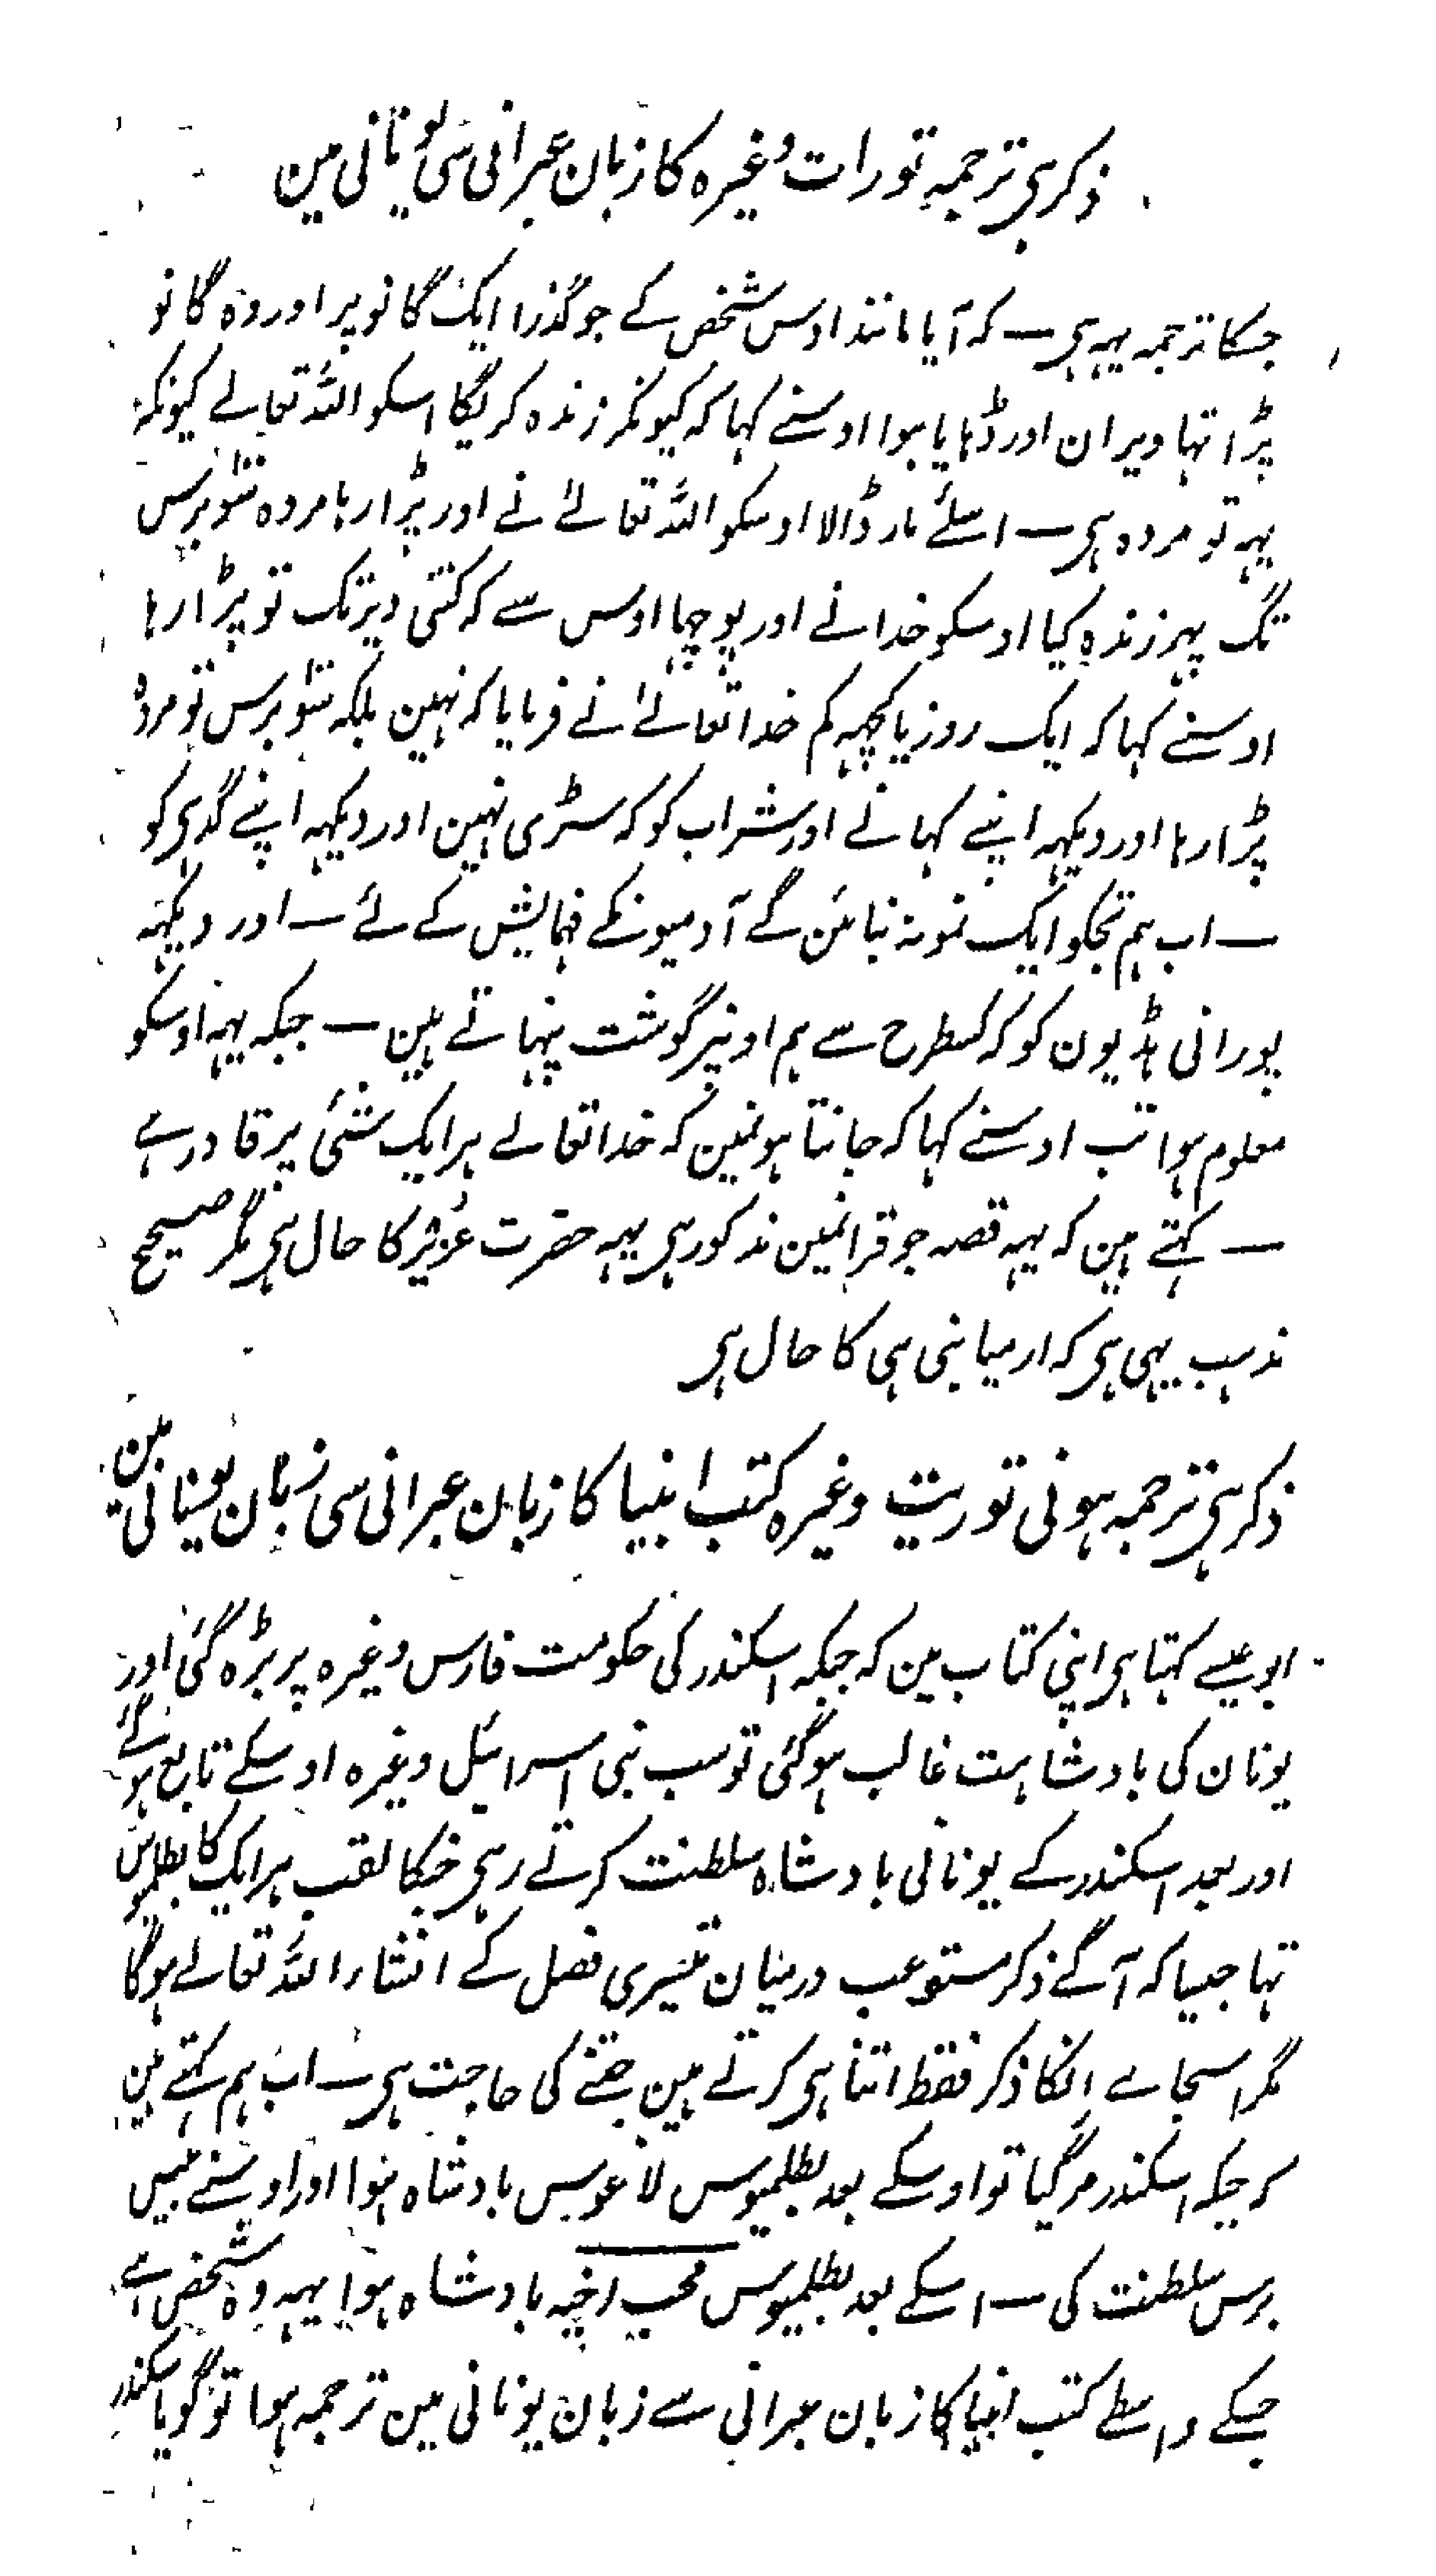 ذکر ہی ترجمہ تورات وغیرہ کا زبان عبرانی سی یونانی مین
جسکا ترجمہ یہہ ہی — کہ آیا مانند اوس شخص کے جو گذرا ایک گانو پر اور وہ گانو
پڑا تہا ویران اور ڈہایا ہوا اوسنے کہا کہ کیونکر زندہ کریگا اسکو اللہ تعالے کیونکہ
یہہ تو مردہ ہی — اسلئے مار ڈالا اوسکو اللہ تعالےٰ نے اور پڑا رہا مردہ سَو برس
تگ پہر زندہ کیا اوسکو خدا نے اور پوچہا اوس سے کہ کتنی دیر تک تو پڑا رہا
اوسنے کہا کہ ایک روز یا کچہہ کم خدا تعالےٰ نے فرمایا کہ نہین بلکہ سَو برس تو مردہ
پڑا رہا اور دیکہہ اپنے کہانے اور شراب کو کہ سڑی نہین اور دیکہہ اپنے گدہی کو
— اب ہم تجکو ایک نمونہ بنائن گے آدمیونکے فہمایش کے لئے — اور دیکہہ
پورانی ہڈیون کو کہ کسطرح سے ہم اونپر گوشت پنہاتے ہین — جبکہ یہہ اوسکو
معلوم ہوا تب اوسنے کہا کہ جانتا ہونمین کہ خدا تعالے ہر ایک شئی پر قادر ہے
— کہتے ہین کہ یہہ قصہ جو قرانمین مذکور ہی یہہ حضرت عُزیر کا حال ہی مگر صحیح
مذہب یہی ہی کہ ارمیا نبی ہی کا حال ہی
ذکر ہی ترجمہ ہونی توریت وغیرہ کتب انبیا کا زبان عبرانی سی زبان یونانی مین
ابو عیسے کہتا ہی اپنی کتاب مین کہ جبکہ اسکندر کی حکومت فارس وغیرہ پر بڑہ گئی اور
یونان کی بادشاہت غالب ہو گئی تو سب بنی اسرائیل وغیرہ اوسکے تابع ہو گئے
اور بعد اسکندر کے یونانی بادشاہ سلطنت کرتے رہی جنکا لقب ہر ایک کا بطلمیوس
تہا جیسا کہ آگے ذکر مستوعب درمیان تیسری فصل کے انشاراللہ تعالے ہوگا
مگر اسجاے انکا ذکر فقط اتنا ہی کرتے ہین جتنے کی حاجت ہی — اب ہم کہتے ہین
کہ جبکہ اسکندر مر گیا تو اوسکے بعد بطلمیوس لاغوس بادشاہ ہوا اور اوسنے بیس
برس سلطنت کی — اسکے بعد بطلمیوس محب اخیہ بادشاہ ہوا یہہ وہ شخص ہے
جسکے واسطے کتب انبیا کا زبان عبرانی سے زبان یونانی مین ترجمہ ہوا تو گویا اسکندر